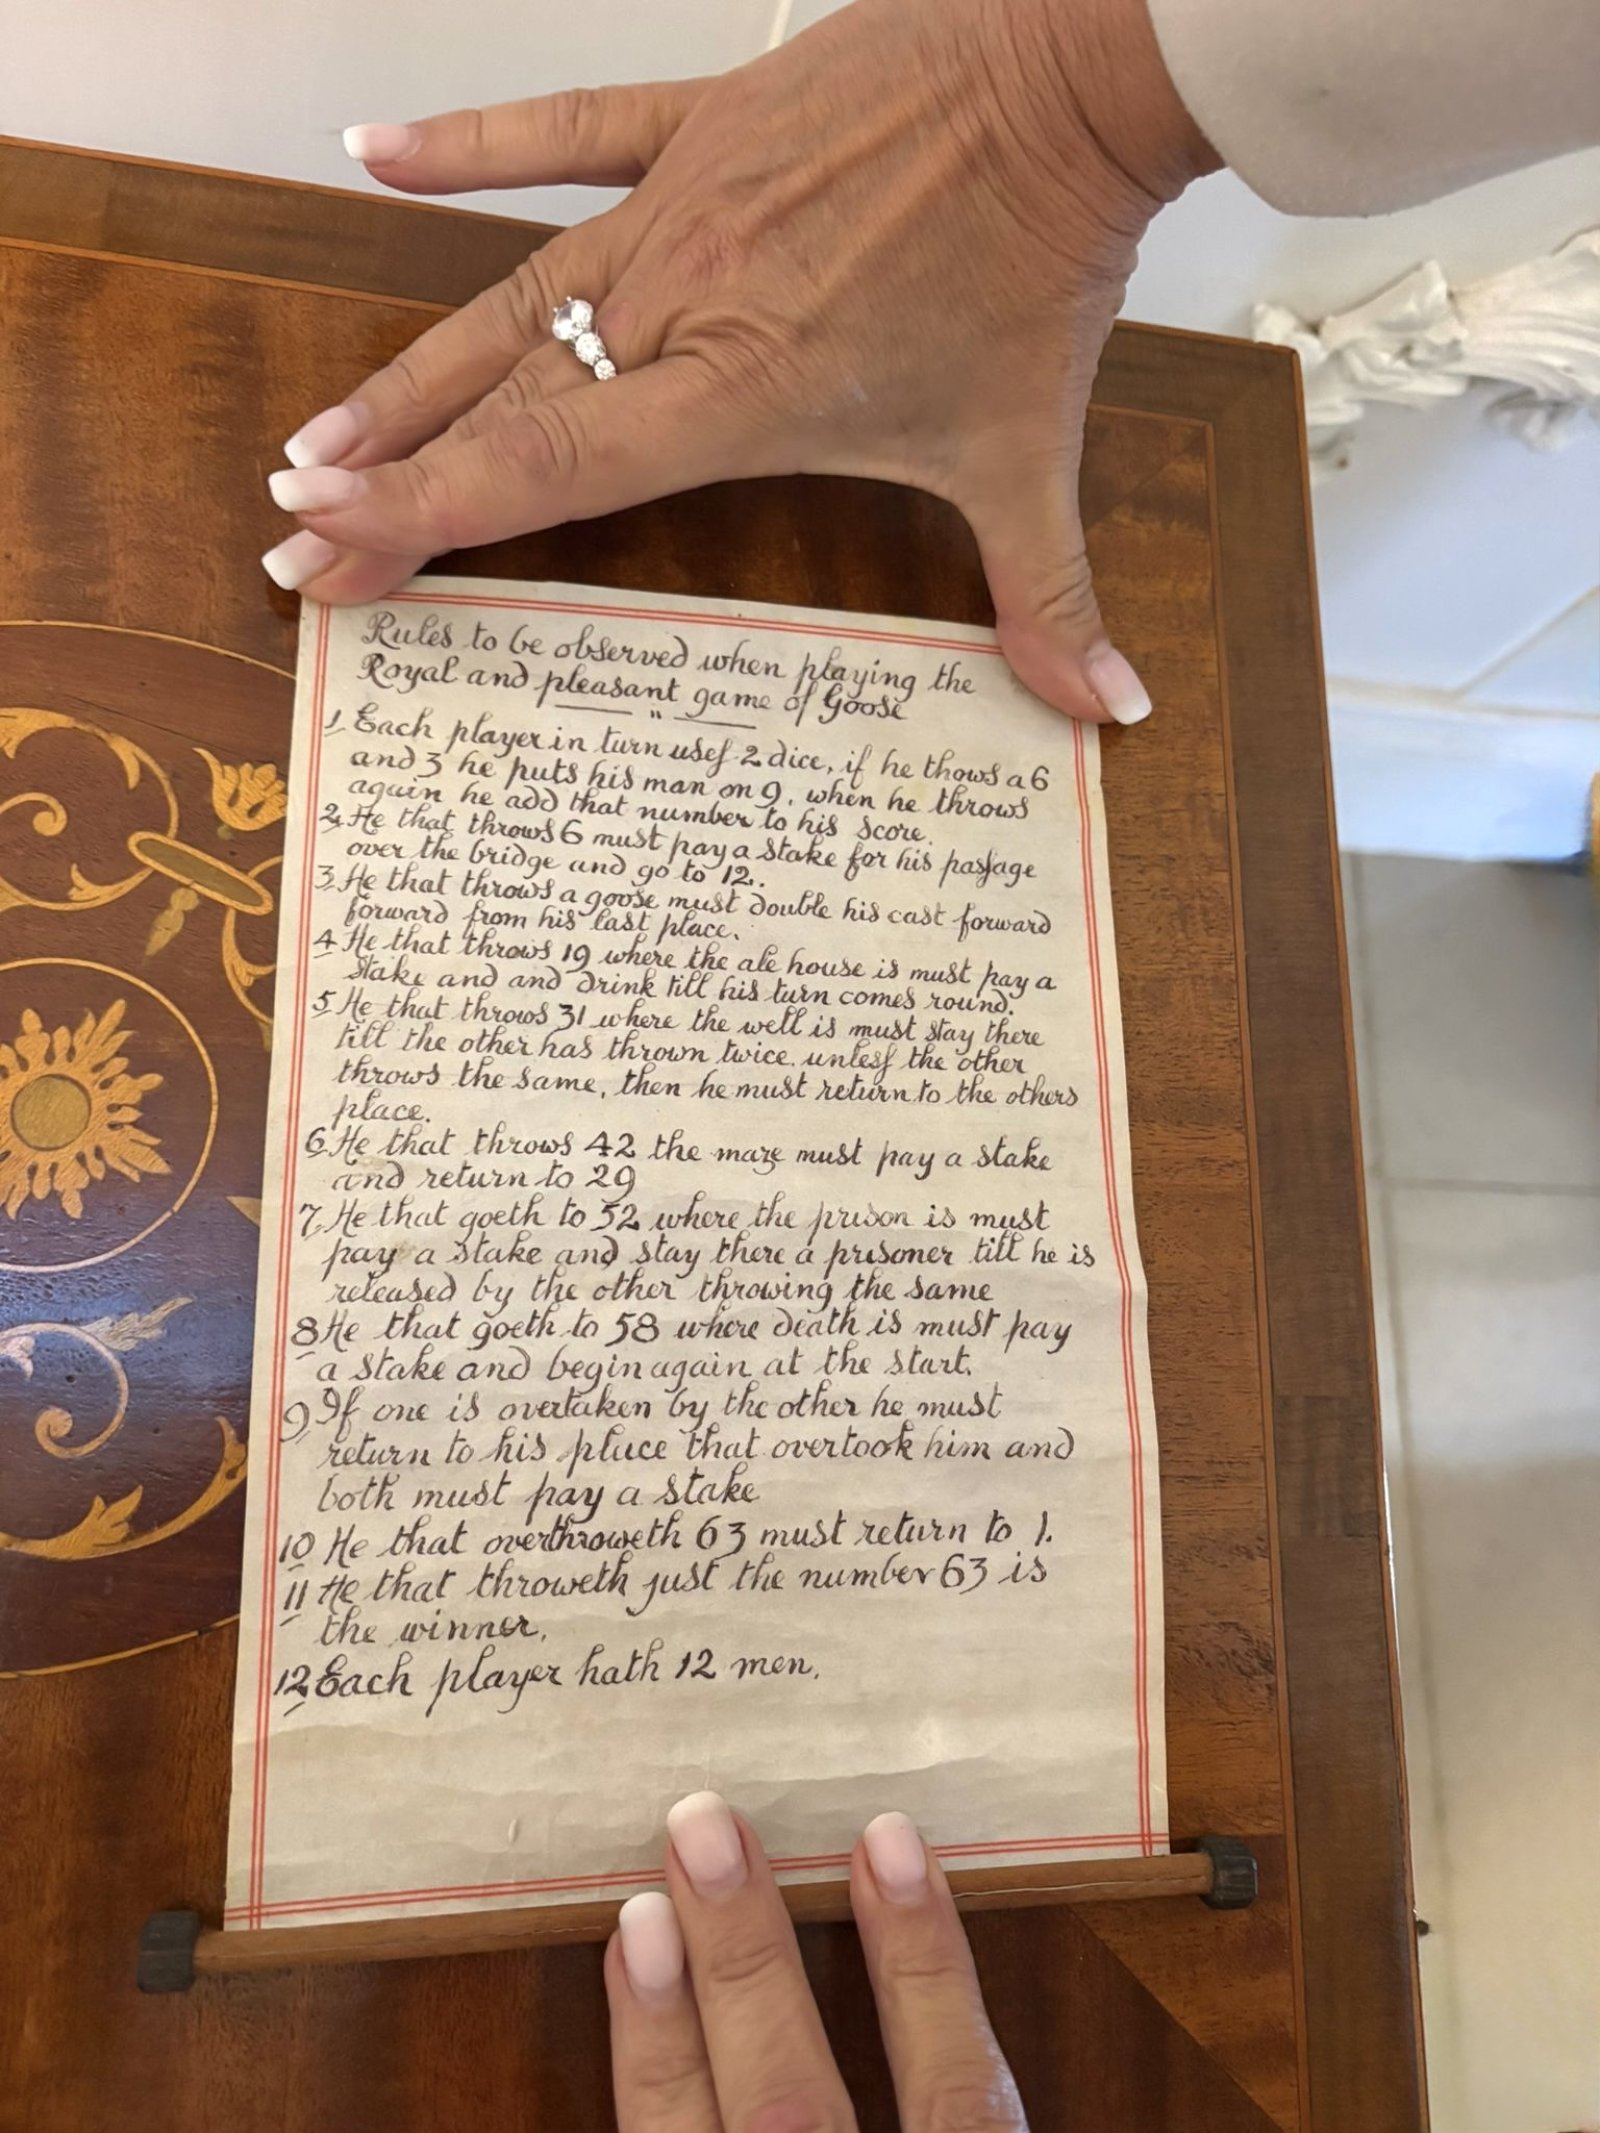 Rules to be observed when playing the
Royal and pleasant game of Goose
"
1 Each player in turn uses 2 dice, if he thows a 6
and 3 he puts his man on 9, when he throws
again he add that number to his score.
2 He that throws 6 must pay a stake for his passage
over the bridge and go to 12.
3 He that throws a goose must double his cast forward
forward from his last place.
4 He that throws 19 where the ale house is must pay a
stake and and drink till his turn comes round.
5 He that throws 31 where the well is must stay there
till the other has thrown twice. unless the other
throws the same, then he must return to the others
place.
6 He that throws 42 the maze must pay a stake
and return to 29
7 He that goeth to 52 where the prison is must
pay a stake and stay there a prisoner till he is
released by the other throwing the same
8 He that goeth to 58 where death is must pay
a stake and begin again at the start.
9 If one is overtaken by the other he must
return to his place that overtook him and
both must pay a stake
10 He that overthroweth 63 must return to 1.
11 He that throweth just the number 63 is
the winner.
12 Each player hath 12 men.